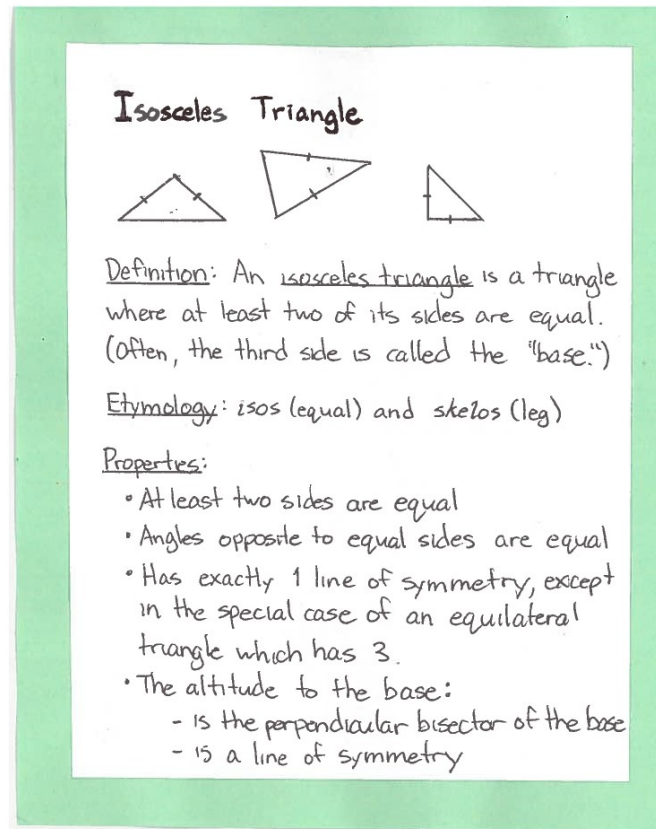 Isosceles Triangle
Definition: An isosceles triangle is a triangle
where at least two of its sides are equal.
(Often, the third side is called the "base.")
Etymology: isos (equal) and skelos (leg)
Properties:
• At least two sides are equal
• Angles opposite to equal sides are equal
• Has exactly 1 line of symmetry, except
in the special case of an equilateral
triangle which has 3.
• The altitude to the base:
- is the perpendicular bisector of the base
- is a line of symmetry